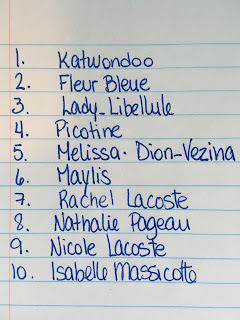 1. Katwondoo
2. Fleur Bleue
3. Lady-Libellule
4. Picotine
5. Melissa Dion-Vezina
6. Maylis
7. Rachel Lacoste
8. Nathalie Pageau
9. Nicole Lacoste
10. Isabelle Massicotte